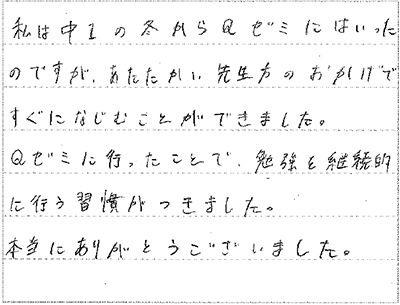 私は中1の冬からQゼミにはいった
のですが、あたたかい先生方のおかげで
すぐになじむことができました。
Qゼミに行ったことで、勉強を継続的
に行う習慣がつきました。
本当にありがとうございました。